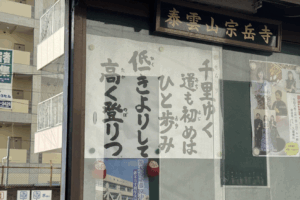 森雲山宗岳寺
千里ゆく
道も初めは
ひと歩み
低きよりして
高く登りつ